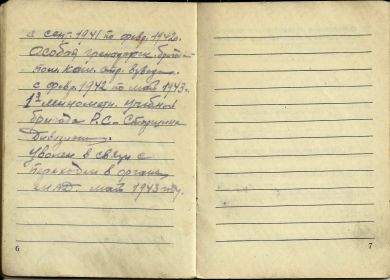 с сент. 1941 по февр. 1942г.
Особой
ком. отр. взвода
с февр. 1942 по май 1943г.
1й минометн. учебной
бригада Р.С. Старшина
Дивизиона.
Уволен в связи с
переходом в органы
май 1943 г.
6
7